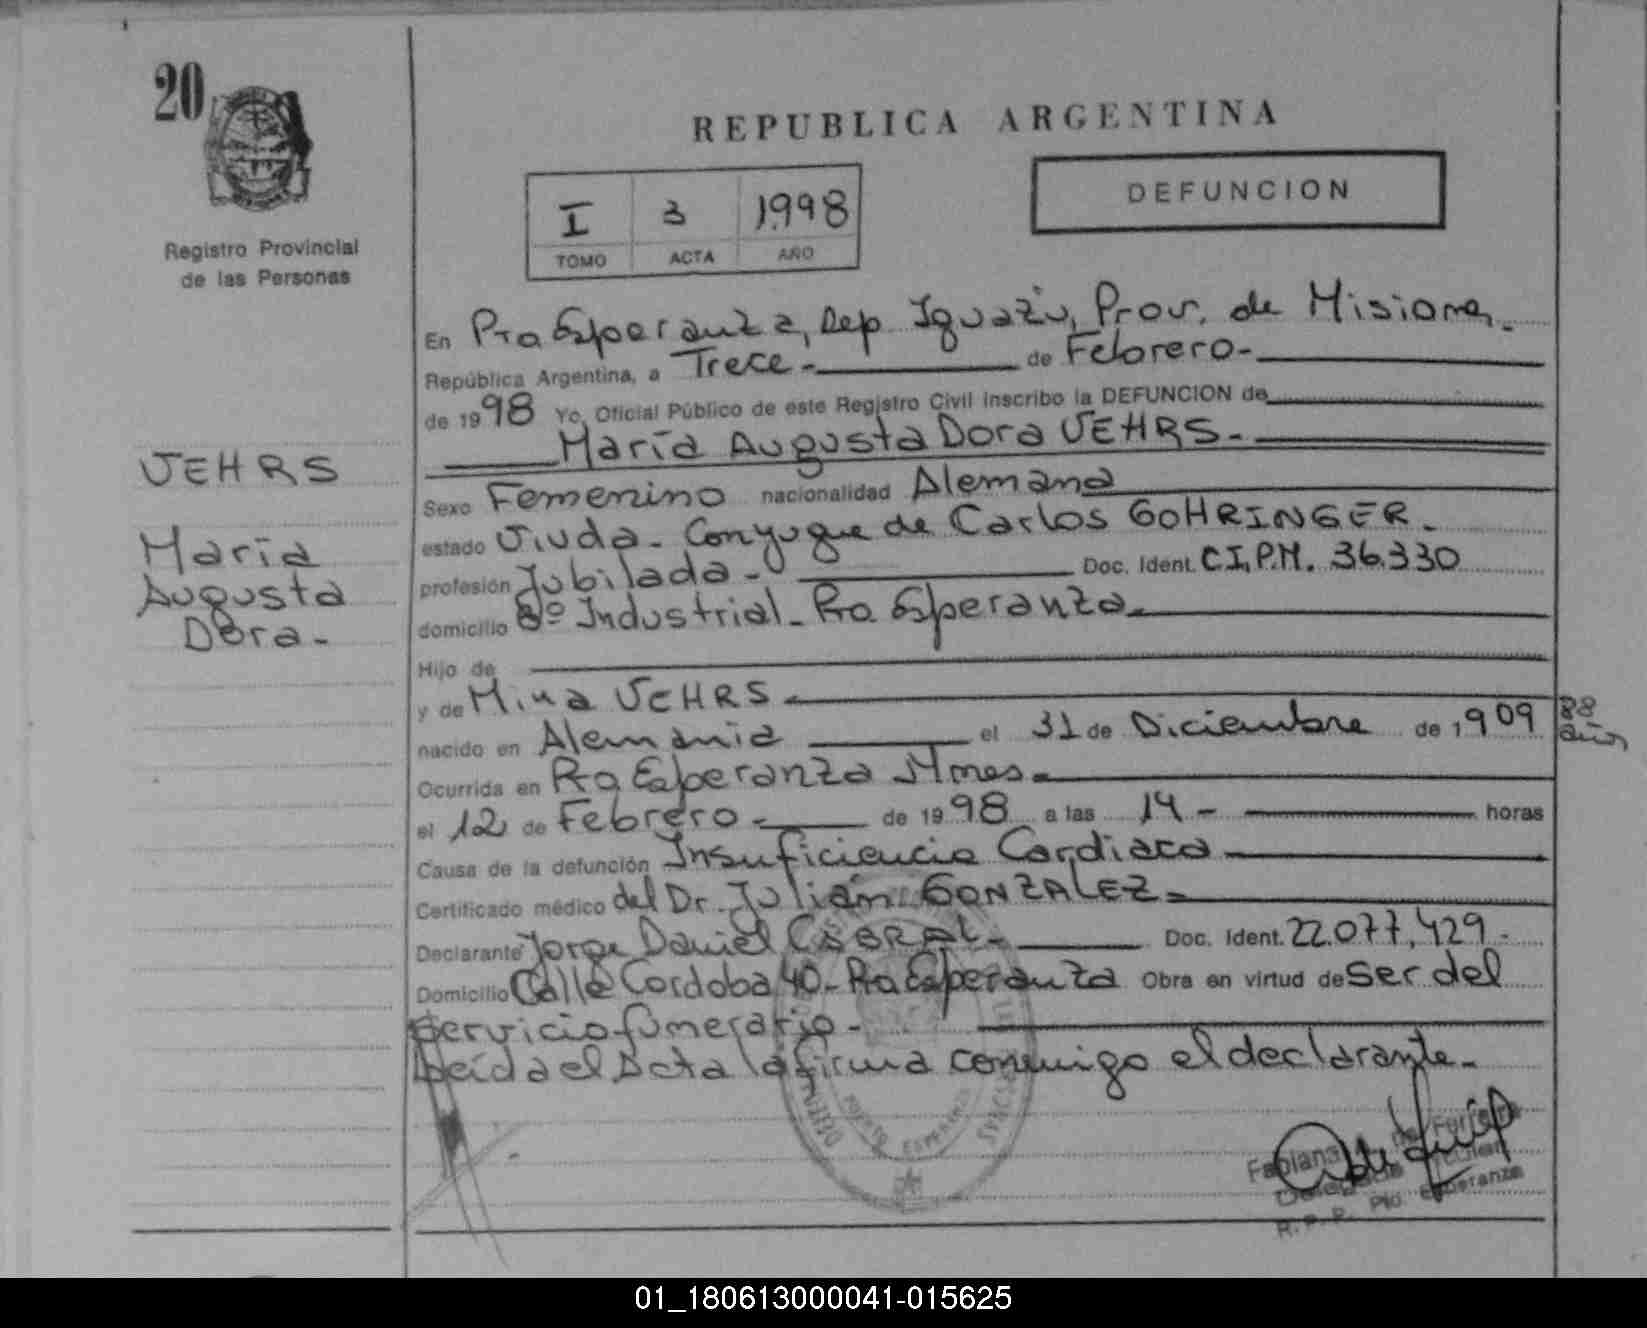 20
Registro Provincial
de las Personas
REPUBLICA ARGENTINA
I 3 1.998
TOMO ACTA AÑO
DEFUNCION
En Pto Esperanza, Dep. Iguazú, Prov. de Misiones.
República Argentina, a Trece.- de Febrero-
de 1998 Yo, Oficial Público de este Registro Civil inscribo la DEFUNCION de
María Augusta Dora UEHRS.-
UEHRS
María
Augusta
Dora.-
Sexo Femenino nacionalidad Alemana
estado Viuda- Conyugue de Carlos GOHRINGER.
profesión Jubilada- Doc. Ident. C.I.P.M. 36.330
domicilio Bº Industrial- Pto. Esperanza.
Hijo de
y de Mina UEHRS.
nacido en Alemania el 31 de Diciembre de 1909 88 años
Ocurrida en Pto Esperanza Mnes.
el 12 de Febrero- de 1998 a las 14- horas
Causa de la defunción Insuficiencia Cardiaca
Certificado médico del Dr. Julián GONZALEZ.
Declarante Jorge Daniel CABRAL- Doc. Ident. 22.077.429.-
Domicilio Calle Cordoba 40- Pto Esperanza Obra en virtud de ser del
Servicio funerario-
Leída el Acta la firma conmigo el declarante-
PUERTO ESPERANZA
Fabiana de Ferreira
Titular
R. P. P. Pto. Esperanza
01_180613000041-015625